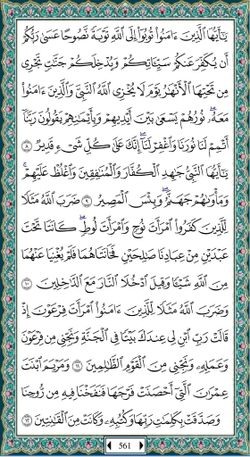 يَٰٓأَيُّهَا ٱلَّذِينَ ءَامَنُوا۟ تُوبُوٓا۟ إِلَى ٱللَّهِ تَوْبَةً نَّصُوحًا عَسَىٰ رَبُّكُمْ
أَن يُكَفِّرَ عَنكُمْ سَيِّـَٔاتِكُمْ وَيُدْخِلَكُمْ جَنَّٰتٍ تَجْرِى
مِن تَحْتِهَا ٱلْأَنْهَٰرُ يَوْمَ لَا يُخْزِى ٱللَّهُ ٱلنَّبِىَّ وَٱلَّذِينَ ءَامَنُوا۟
مَعَهُۥ ۖ نُورُهُمْ يَسْعَىٰ بَيْنَ أَيْدِيهِمْ وَبِأَيْمَٰنِهِمْ يَقُولُونَ رَبَّنَآ
أَتْمِمْ لَنَا نُورَنَا وَٱغْفِرْ لَنَآ ۖ إِنَّكَ عَلَىٰ كُلِّ شَىْءٍ قَدِيرٌ ٨
يَٰٓأَيُّهَا ٱلنَّبِىُّ جَٰهِدِ ٱلْكُفَّارَ وَٱلْمُنَٰفِقِينَ وَٱغْلُظْ عَلَيْهِمْ ۚ
وَمَأْوَىٰهُمْ جَهَنَّمُ ۖ وَبِئْسَ ٱلْمَصِيرُ ٩ ضَرَبَ ٱللَّهُ مَثَلًا
لِّلَّذِينَ كَفَرُوا۟ ٱمْرَأَتَ نُوحٍ وَٱمْرَأَتَ لُوطٍ ۖ كَانَتَا تَحْتَ
عَبْدَيْنِ مِنْ عِبَادِنَا صَٰلِحَيْنِ فَخَانَتَاهُمَا فَلَمْ يُغْنِيَا عَنْهُمَا
مِنَ ٱللَّهِ شَيْـًٔا وَقِيلَ ٱدْخُلَا ٱلنَّارَ مَعَ ٱلدَّٰخِلِينَ ١٠
وَضَرَبَ ٱللَّهُ مَثَلًا لِّلَّذِينَ ءَامَنُوا۟ ٱمْرَأَتَ فِرْعَوْنَ إِذْ
قَالَتْ رَبِّ ٱبْنِ لِى عِندَكَ بَيْتًا فِى ٱلْجَنَّةِ وَنَجِّنِى مِن فِرْعَوْنَ
وَعَمَلِهِۦ وَنَجِّنِى مِنَ ٱلْقَوْمِ ٱلظَّٰلِمِينَ ١١ وَمَرْيَمَ ٱبْنَتَ
عِمْرَٰنَ ٱلَّتِىٓ أَحْصَنَتْ فَرْجَهَا فَنَفَخْنَا فِيهِ مِن رُّوحِنَا
وَصَدَّقَتْ بِكَلِمَٰتِ رَبِّهَا وَكُتُبِهِۦ وَكَانَتْ مِنَ ٱلْقَٰنِتِينَ ١٢
561